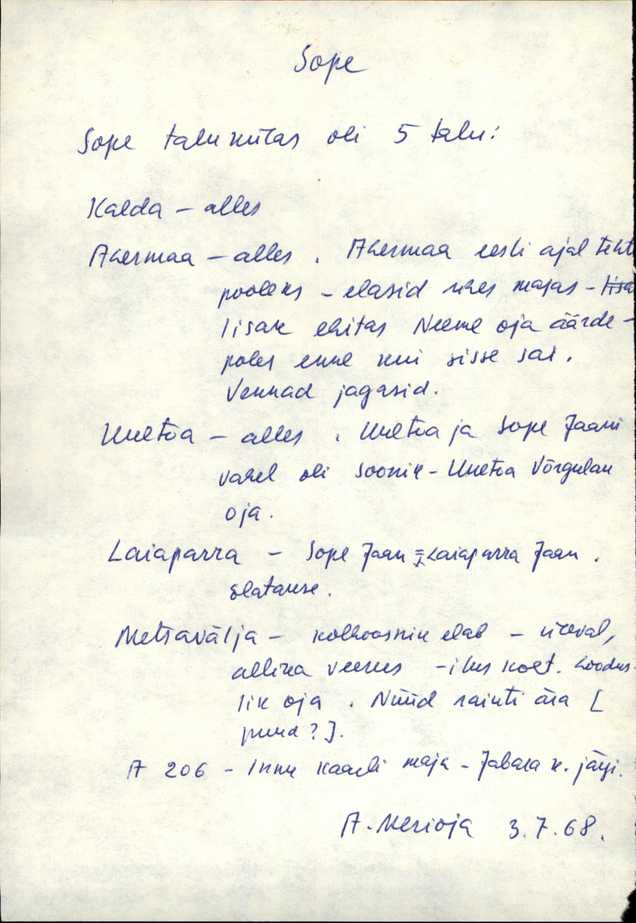 Sope
Sope talu külas oli 5 talu:
Kalda - alles
Akermaa - alles. Akermaa eesti ajal tehti
pooleks - elasid ühes majas -
lisak ehitas Neeme oja äärde -
poles enne kui sisse sai.
Vennad jagasid.
Unetoa - alles. Unetoa ja Sope Jaani
vahel oli soonik - Unetoa Võrgulau
oja.
Laiaparra - Sope Jaan = Laiaparra Jaan.
Elatakse.
Metsavälja - kolhoosnik elab - üleval,
allika veerus - ilus koht. Loodus-
lik oja. Nüüd raiuti ära [
puud?].
A 206 - Innu Kaarli maja - Jabara k. järgi.
A. Merioja 3.7.68.